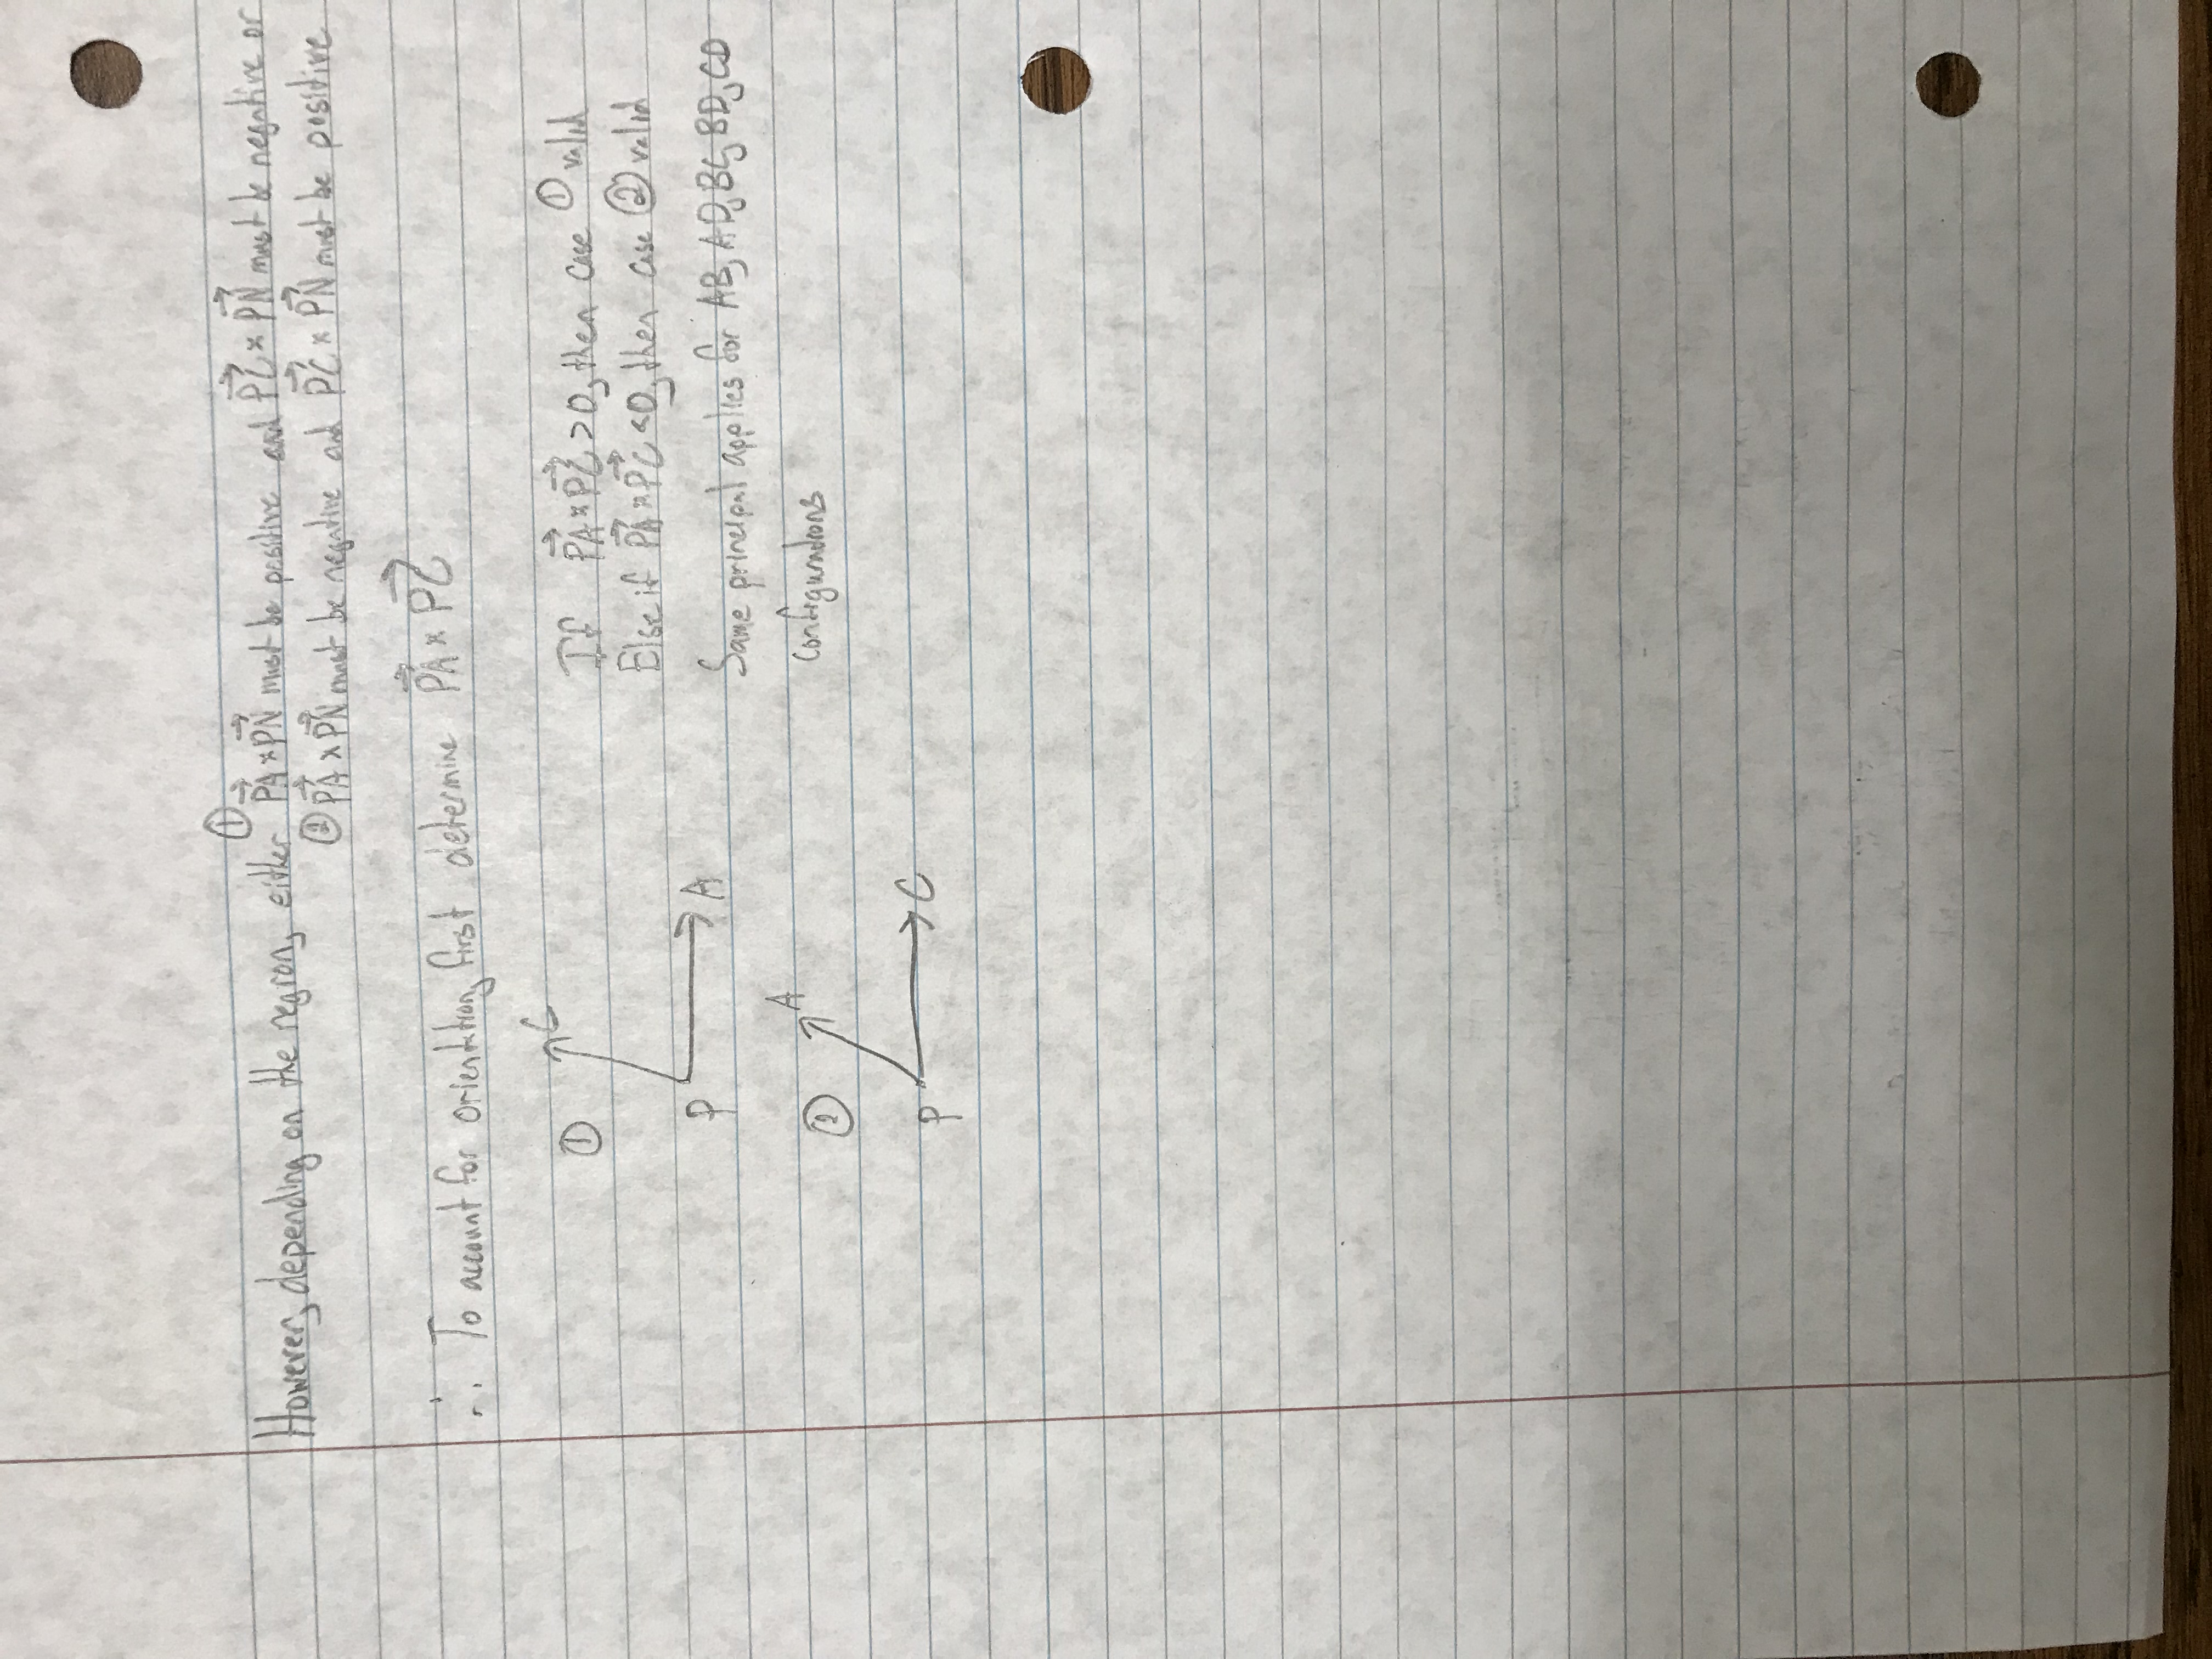 ①
However, depending on the region, either PA⃗ × PN⃗ must be positive and PC⃗ × PN⃗ must be negative or
② PA⃗ × PN⃗ must be negative and PC⃗ × PN⃗ must be positive
∴ To account for orientation, first determine PA⃗ × PC⃗
① C
P A
If PA⃗ × PC⃗ > 0, then case ① valid
Else if PA⃗ × PC⃗ < 0, then case ② valid
Same principal applies for AB, AD, BC, BD, CD
configurations
② A
P C